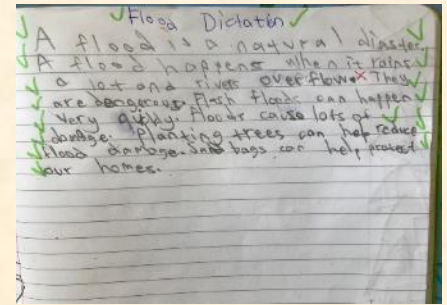 Flood Dictation
A flood is a natural diaster.
A flood happens when it rains
a lot and rivers overflow. They
are dangerous. Flash floods can happen
very quickly. Floods cause lots of
damage. Planting trees can help reduce
flood damage. Sand bags can help protect
our homes.